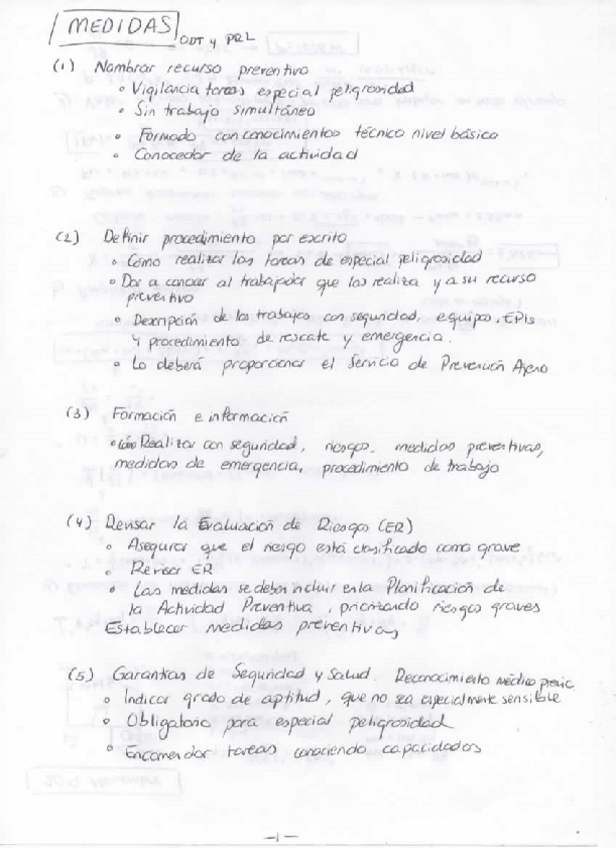 MEDIDAS ODT y PRL
(1) Nombrar recurso preventivo
• Vigilancia tareas especial peligrosidad
• Sin trabajo simultáneo
• Formado con conocimientos técnico nivel básico
• Conocedor de la actividad
(2) Definir procedimiento por escrito
• Cómo realizar las tareas de especial peligrosidad
• Dar a conocer al trabajador que las realiza y a su recurso
preventivo
• Descripción de los trabajos con seguridad, equipos, EPIs
y procedimiento de rescate y emergencia.
• Lo deberá proporcionar el Servicio de Prevención Ajeno
(3) Formación e información
• cómo Realizar con seguridad, riesgos, medidas preventivas,
medidas de emergencia, procedimiento de trabajo
(4) Revisar la Evaluación de Riesgos (ER)
• Asegurar que el riesgo está clasificado como grave
• Revisar ER
• Las medidas se deben incluir en la Planificación de
la Actividad Preventiva, priorizando riesgos graves
Establecer medidas preventivas
(5) Garantías de Seguridad y Salud. Reconocimiento médico peric
• Indicar grado de aptitud, que no sea especialmente sensible
• Obligatorio para especial peligrosidad
• Encomendar tareas conociendo capacidades
-1-